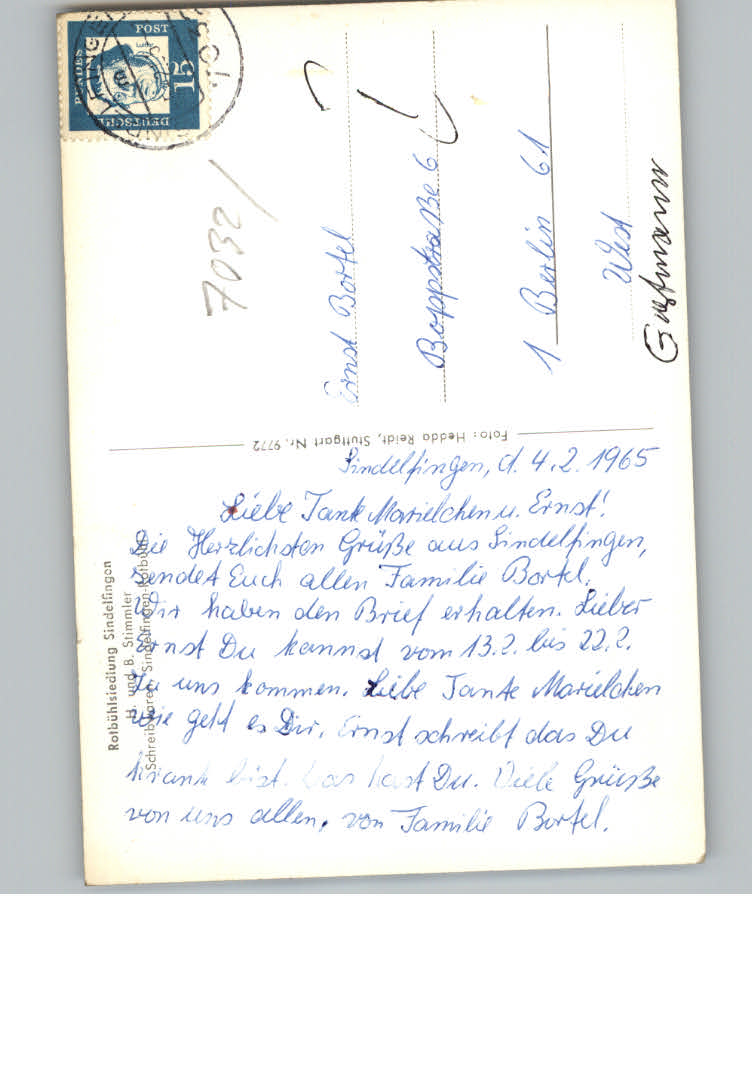 Sindelfingen, d. 4.2.1965
Liebe Tante Marielchen u. Ernst!
Die Herzlichsten Grüße aus Sindelfingen,
sendet Euch allen Familie Bortel.
Wir haben den Brief erhalten. Lieber
Ernst Du kannst vom 13.2. bis 22.2.
zu uns kommen. Liebe Tante Marielchen
wie geht es Dir. Ernst schreibt das Du
krank bist. Was hast Du. Viele Grüße
von uns allen, von Familie Bortel.
Ernst Bortel
Boppstraße 6
1 Berlin 61
West
7032/
DEUTSCHE
BUNDES
POST
15
Foto: Hedda Reidt, Stuttgart Nr. 9772
Rotbühlsiedlung Sindelfingen
H. und B. Stimmler
Schreibwaren, Sindelfingen-Rotbühl